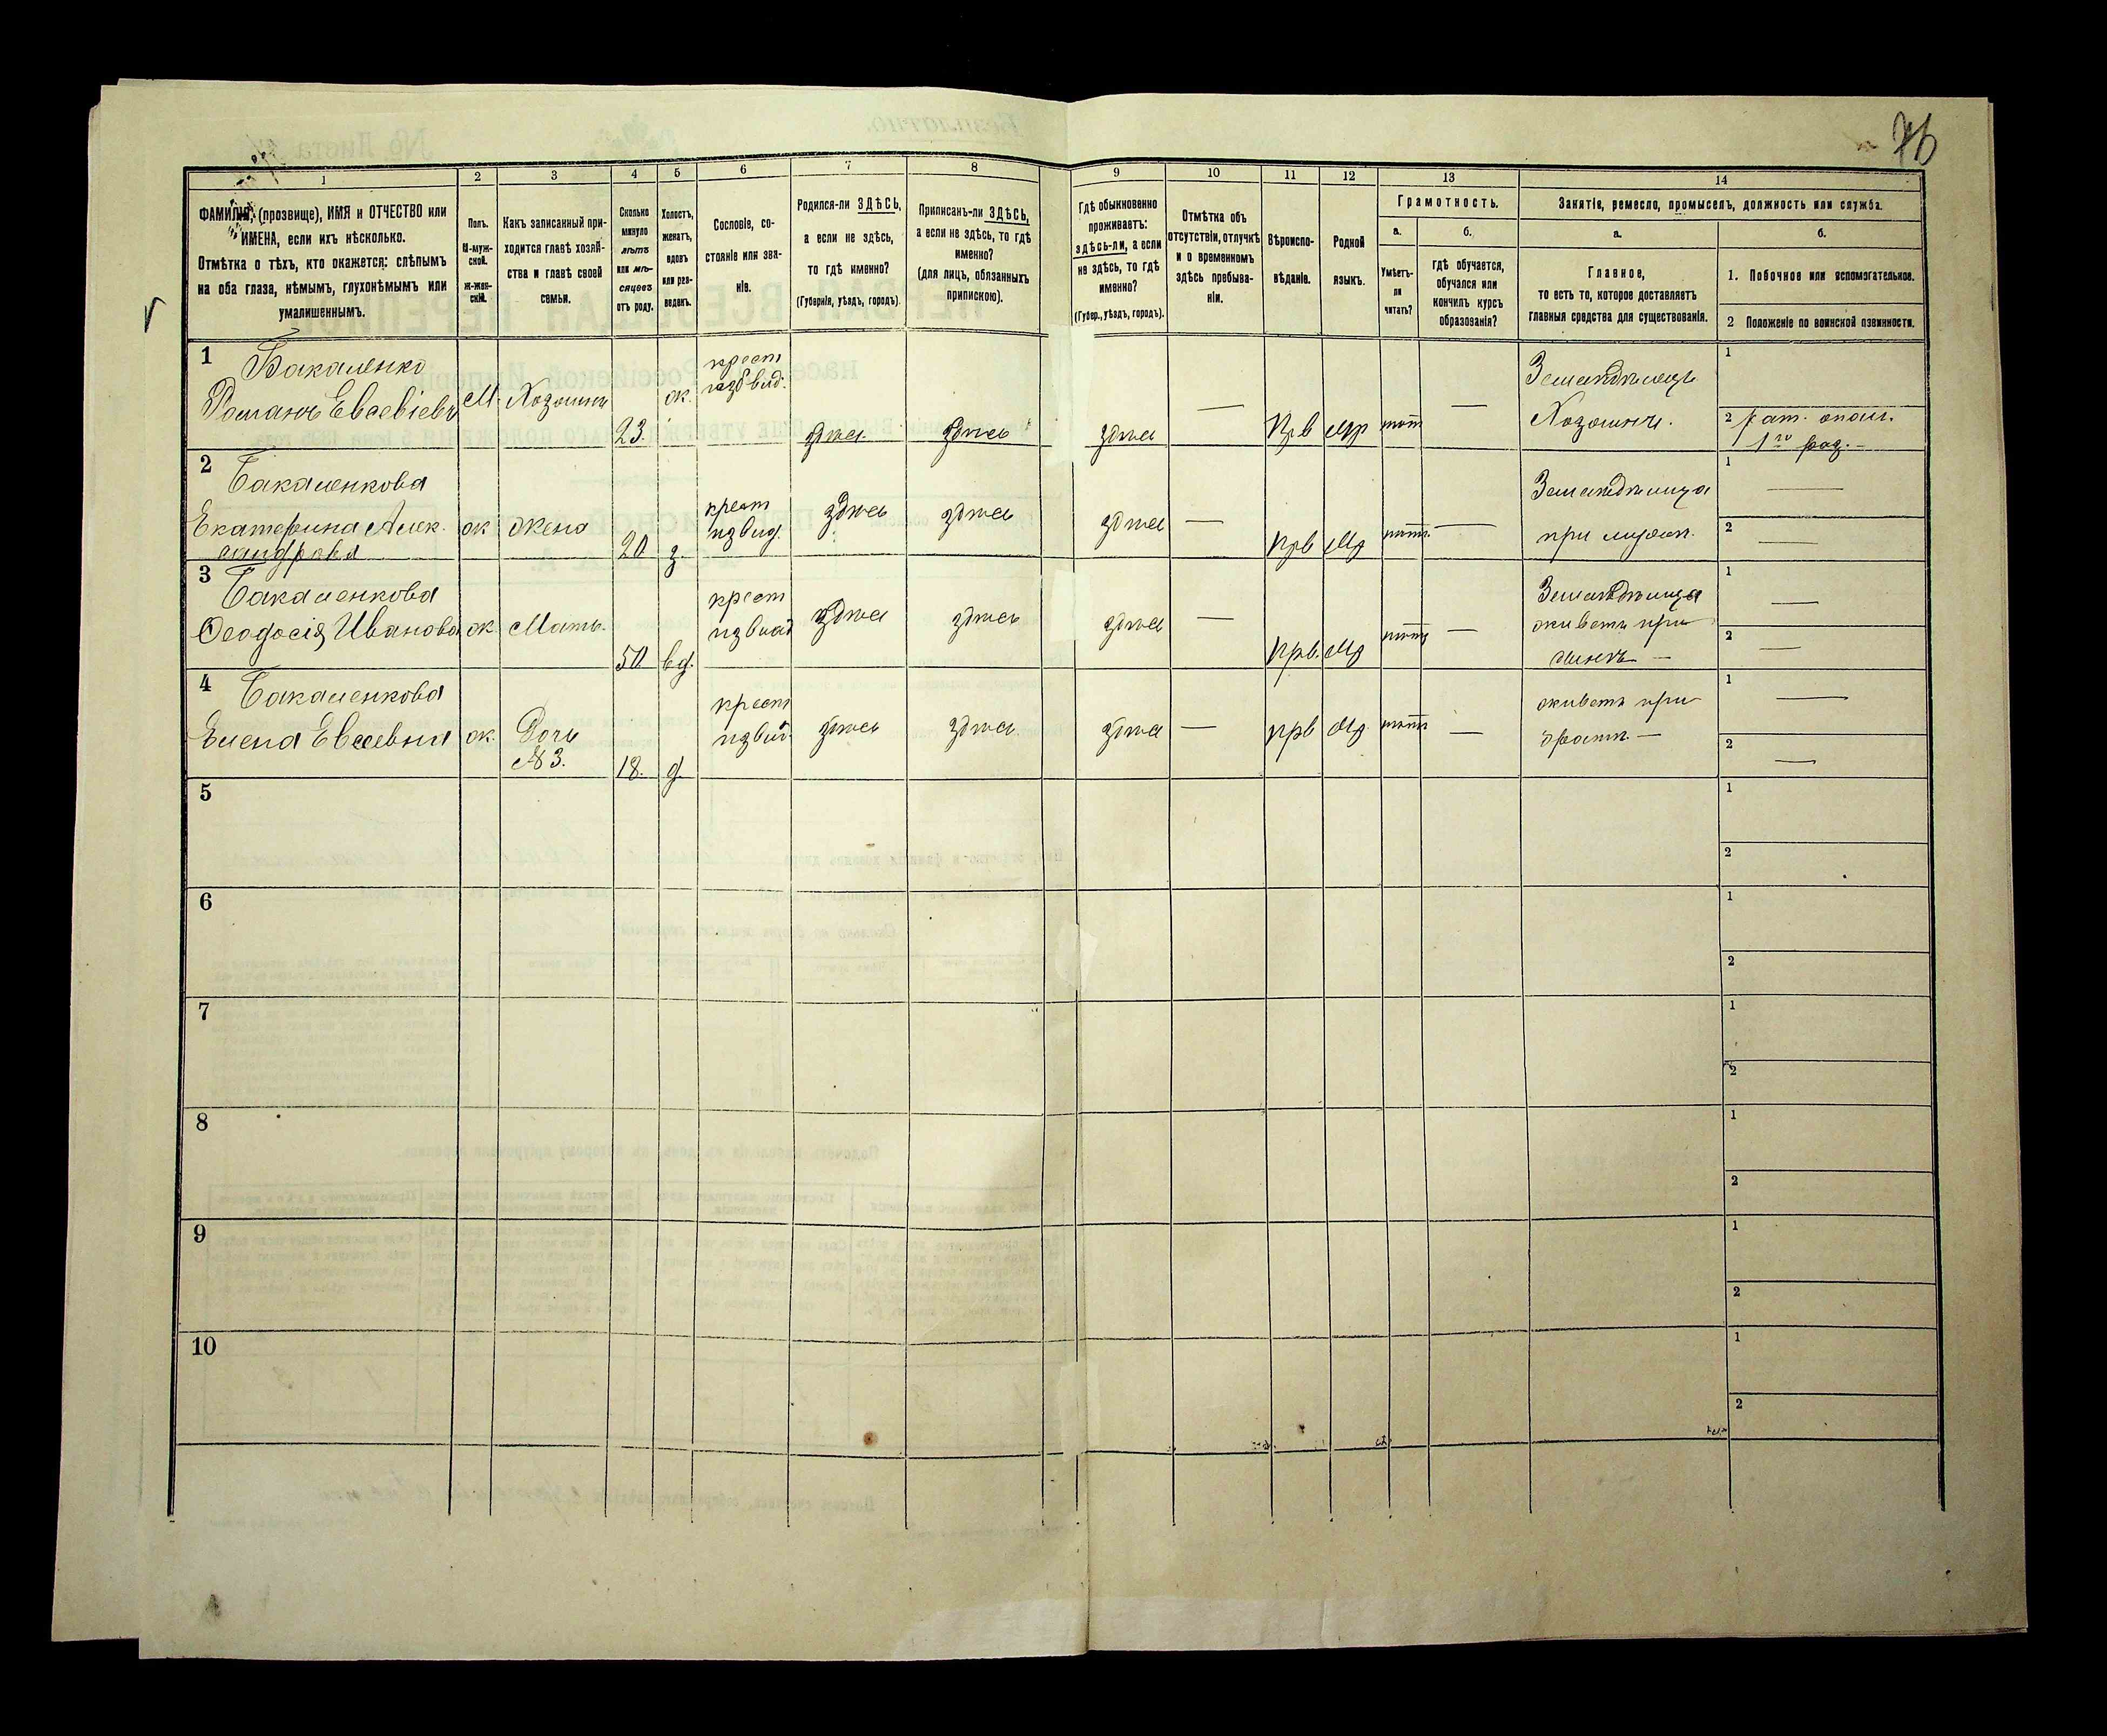 76
1
2
3
4
5
6
7
8
9
10
11
12
13
14
ФАМИЛІЯ, (прозвище), ИМЯ и ОТЧЕСТВО или
ИМЕНА, если ихъ нѣсколько.
Отмѣтка о тѣхъ, кто окажется: слѣпымъ
на оба глаза, нѣмымъ, глухонѣмымъ или
умалишеннымъ.
Полъ.
М-муж-
ской.
Ж-жен-
скій.
Какъ записанный при-
ходится главѣ хозяй-
ства и главѣ своей
семьи.
Сколько
минуло
лѣтъ
или мѣ-
сяцевъ
отъ роду.
Холостъ,
женатъ,
вдовъ
или раз-
веденъ.
Сословіе, со-
стояніе или зва-
ніе.
Родился-ли ЗДѢСЬ,
а если не здѣсь,
то гдѣ именно?
(Губернія, уѣздъ, городъ).
Приписанъ-ли ЗДѢСЬ,
а если не здѣсь, то гдѣ
именно?
(для лицъ, обязанныхъ
припискою).
Гдѣ обыкновенно
проживаетъ:
здѣсь-ли, а если
не здѣсь, то гдѣ
именно?
(Губер., уѣздъ, городъ).
Отмѣтка объ
отсутствіи, отлучкѣ
и о временномъ
здѣсь пребыва-
ніи.
Вѣроиспо-
вѣданіе.
Родной
языкъ.
Грамотность.
а.
Умѣетъ-
ли
читать?
б.
гдѣ обучается,
обучался или
кончилъ курсъ
образованія?
Занятіе, ремесло, промыселъ, должность или служба.
а.
Главное,
то есть то, которое доставляетъ
главныя средства для существованія.
б.
1. Побочное или вспомогательное.
2 Положеніе по воинской повинности.
1 Бакаленко
Романъ Евсевіевъ М. Хозяинъ 23. ж. крест
изъ влад. здѣсь здѣсь здѣсь — Прв Мр нѣтъ — Земледѣлецъ
Хозяинъ. 1
2 рат. опол.
1го раз. —
2 Бакаленкова
Екатерина Алек-
сандрова ж жена 20 з. крест
изъ влд. здѣсь здѣсь здѣсь — прв Мр нѣтъ. — Земледѣлица
при мужѣ. 1 —
2 —
3 Бакаленкова
Ѳеодосія Иванова ж Мать. 50 вд. крест
изъ влад здѣсь здѣсь здѣсь — прв. Мр нѣтъ — Земледѣлица
живетъ при
сынѣ — 1 —
2 —
4 Бакаленкова
Елена Евсевна ж. Дочь
№ 3. 18. д. крест
изъ влд. здѣсь здѣсь здѣсь — прв Мр. нѣтъ — живетъ при
братѣ. — 1 —
2 —
5 1
2
6 1
2
7 1
2
8 1
2
9 1
2
10 1
2